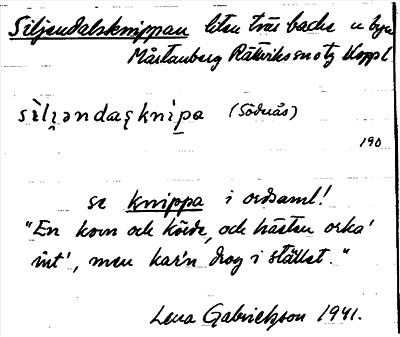 Siljendalsknippan liten tvär backe n byn
Mårtanberg Rättviks snotz Koppl
sìli̯əndaʂknìpa (Södnäs)
190
se knippa i ordsaml!
"En kom och körde, och hästen orka'
int', men kar'n drog i stället."
Lena Gabrielsson 1941.